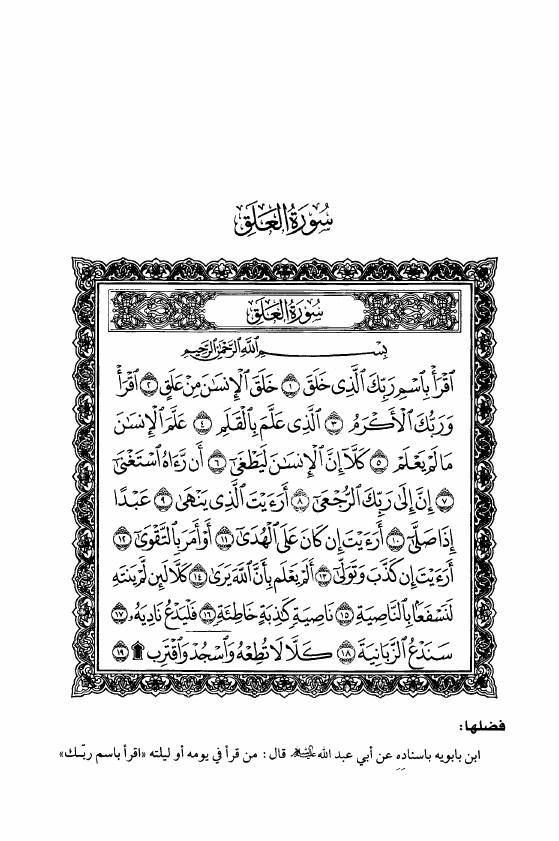 سُورَةُ الْعَلَقِ
سُورَةُ الْعَلَقِ
بِسْمِ اللَّهِ الرَّحْمَٰنِ الرَّحِيمِ
ٱقْرَأْ بِٱسْمِ رَبِّكَ ٱلَّذِى خَلَقَ ١ خَلَقَ ٱلْإِنسَٰنَ مِنْ عَلَقٍ ٢ ٱقْرَأْ
وَرَبُّكَ ٱلْأَكْرَمُ ٣ ٱلَّذِى عَلَّمَ بِٱلْقَلَمِ ٤ عَلَّمَ ٱلْإِنسَٰنَ
مَا لَمْ يَعْلَمْ ٥ كَلَّآ إِنَّ ٱلْإِنسَٰنَ لَيَطْغَىٰٓ ٦ أَن رَّءَاهُ ٱسْتَغْنَىٰٓ
٧ إِنَّ إِلَىٰ رَبِّكَ ٱلرُّجْعَىٰٓ ٨ أَرَءَيْتَ ٱلَّذِى يَنْهَىٰ ٩ عَبْدًا
إِذَا صَلَّىٰٓ ١٠ أَرَءَيْتَ إِن كَانَ عَلَى ٱلْهُدَىٰٓ ١١ أَوْ أَمَرَ بِٱلتَّقْوَىٰٓ ١٢
أَرَءَيْتَ إِن كَذَّبَ وَتَوَلَّىٰٓ ١٣ أَلَمْ يَعْلَم بِأَنَّ ٱللَّهَ يَرَىٰ ١٤ كَلَّا لَئِن لَّمْ يَنتَهِ
لَنَسْفَعًۢا بِٱلنَّاصِيَةِ ١٥ نَاصِيَةٍ كَٰذِبَةٍ خَاطِئَةٍ ١٦ فَلْيَدْعُ نَادِيَهُۥ ١٧
سَنَدْعُ ٱلزَّبَانِيَةَ ١٨ كَلَّا لَا تُطِعْهُ وَٱسْجُدْ وَٱقْتَرِب ۩ ١٩
فضلها:
ابن بابويه باسناده عن أبي عبد الله عليه السلام قال: من قرأ في يومه أو ليلته «اقرأ باسم ربّك»